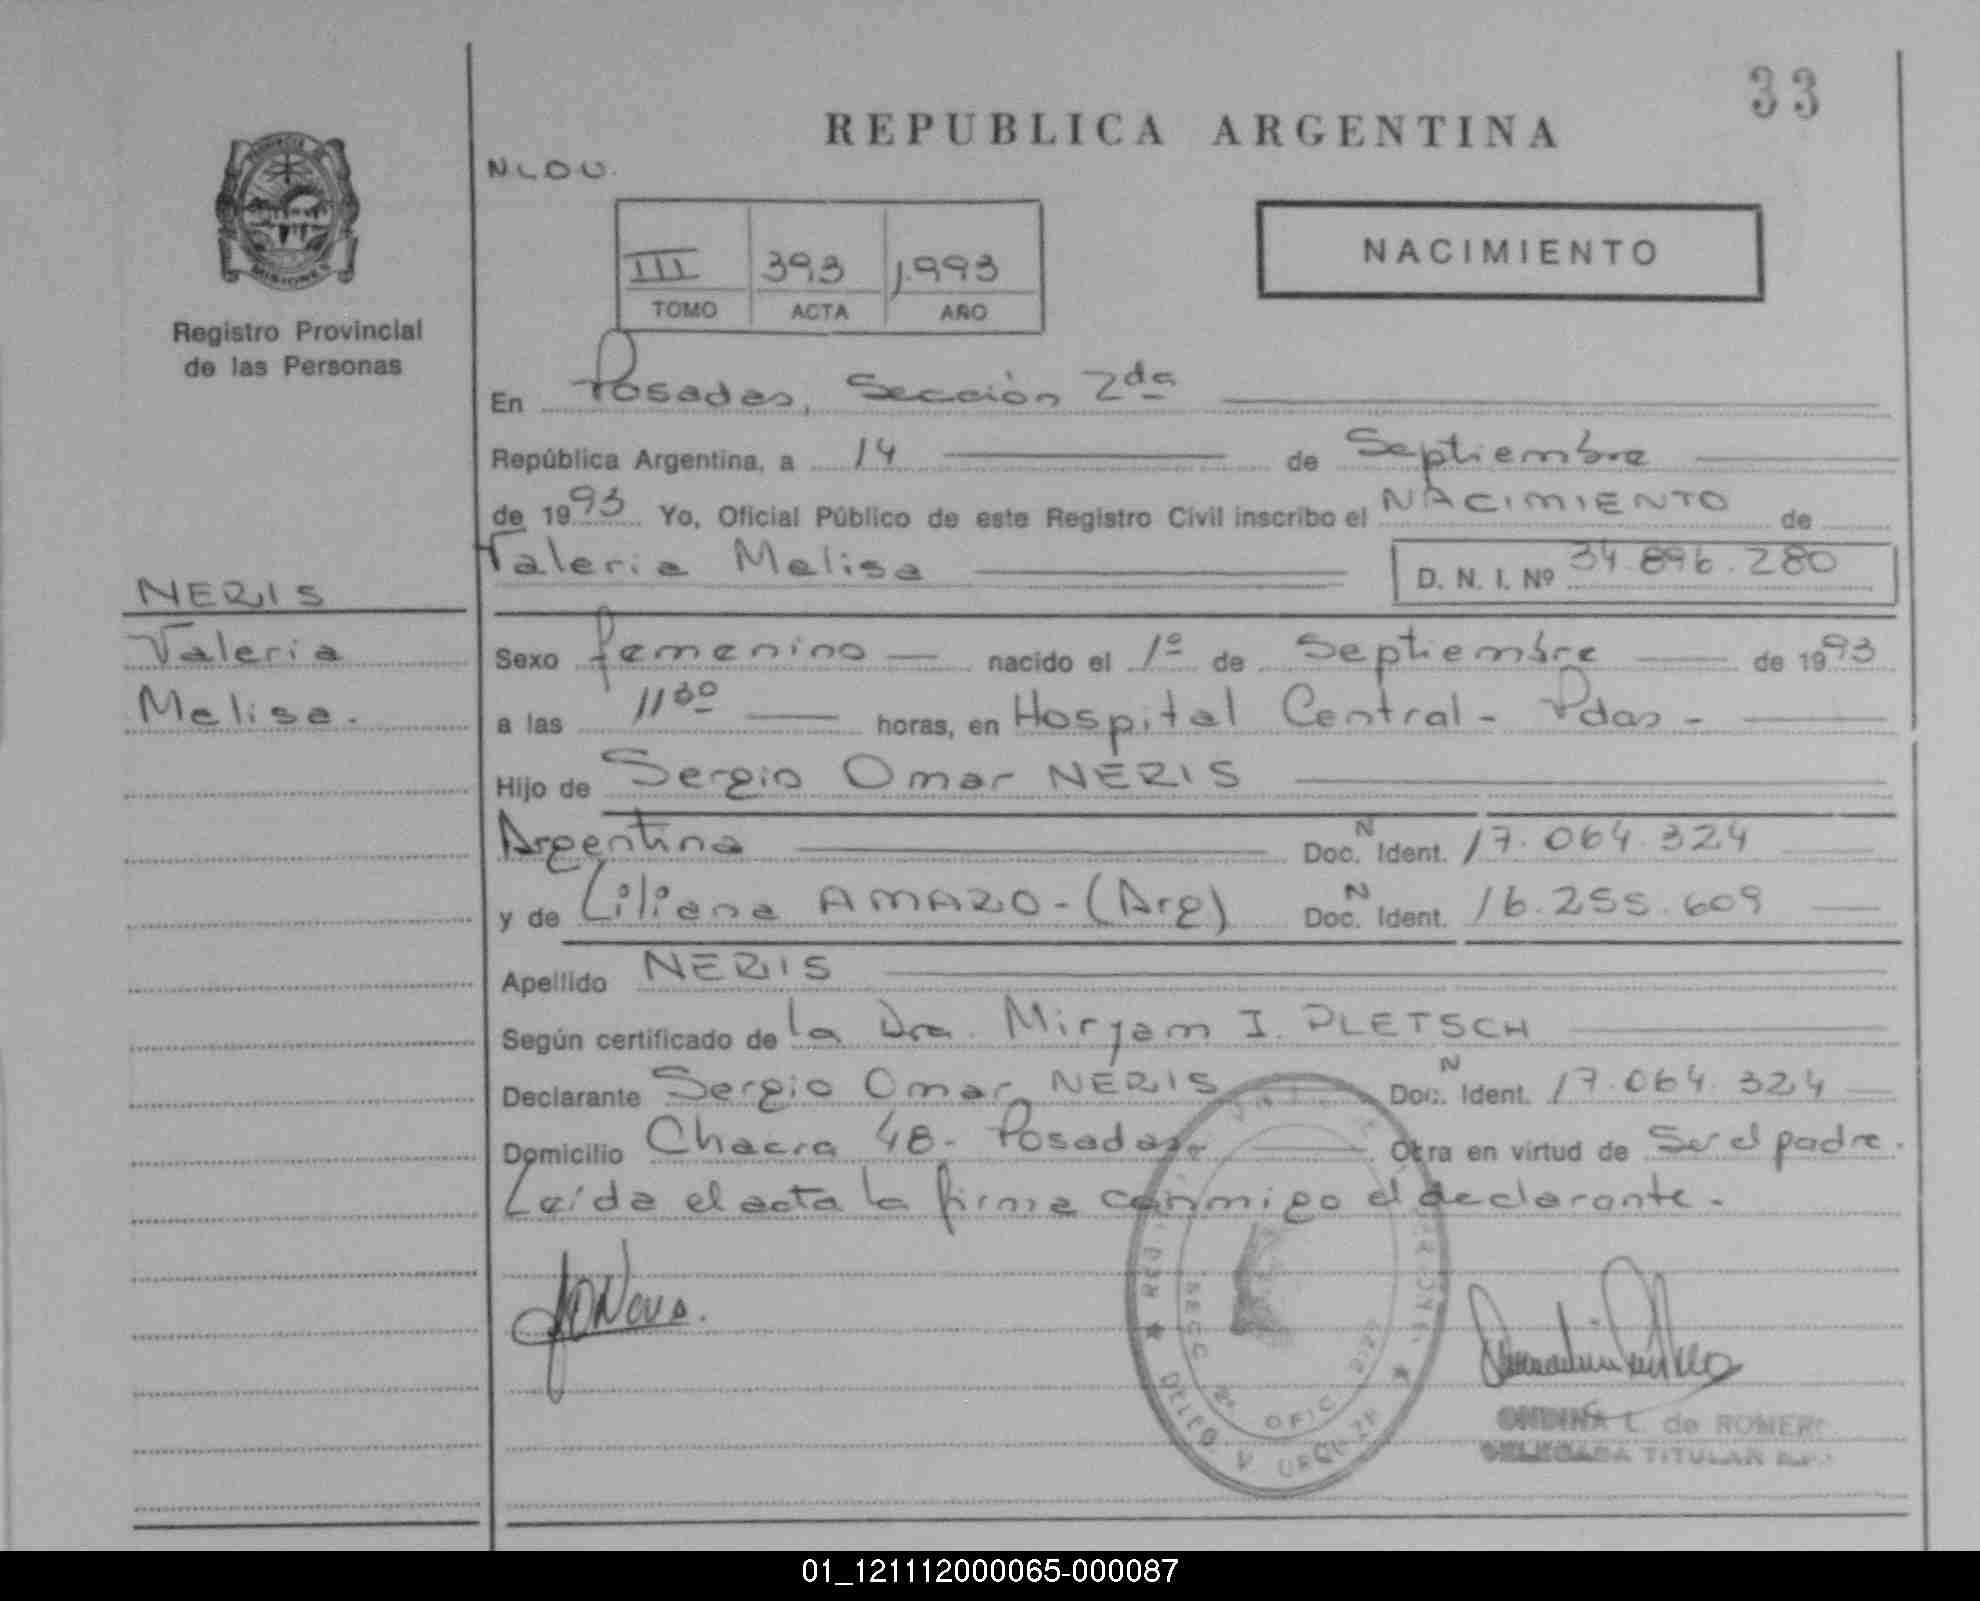 33
REPUBLICA ARGENTINA
NLDU.
NACIMIENTO
III 393 1.993
TOMO ACTA AÑO
Registro Provincial
de las Personas
En Posadas, Sección 2da
República Argentina, a 14 de Septiembre
de 1993 Yo, Oficial Público de este Registro Civil inscribo el NACIMIENTO de
Valeria Melisa D. N. I. Nº 34.896.280
NERIS
Valeria
Melisa.
Sexo femenino nacido el 1º de Septiembre de 1993
a las 11 30 horas, en Hospital Central - Pdas -
Hijo de Sergio Omar NERIS
Argentina Doc. N Ident. 17.064.324
y de Liliana AMARO - (Arg) Doc. N Ident. 16.255.609
Apellido NERIS
Según certificado de la Dra. Miryam I. PLETSCH
Declarante Sergio Omar NERIS Doc. N Ident. 17.064.324
Domicilio Chacra 48 - Posadas. Obra en virtud de Ser el padre.
Leída el acta la firma conmigo el declarante.
SECC 2º OFIC
URQUIZA
ONDINA L. de ROMERO
DELEGADA TITULAR
01_121112000065-000087